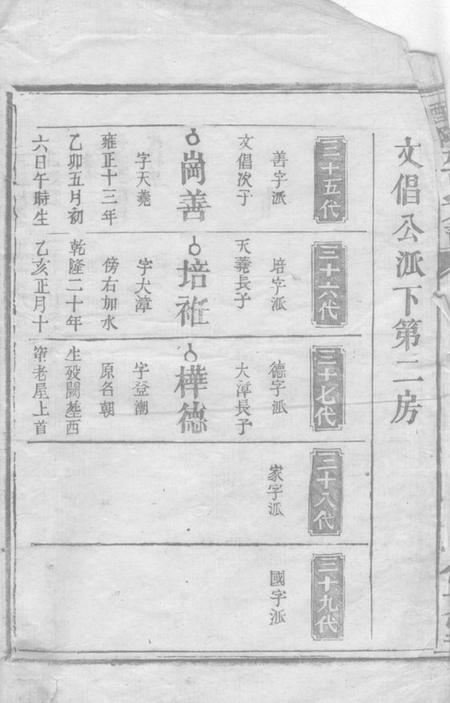 文倡公派下第二房
三十五代
善字派
文倡次子
崗善
字天堯
雍正十三年
乙卯五月初
六日午時生
三十六代
培字派
天堯長子
培
字大漳
傍右加水
乾隆二十年
乙亥正月十
三十七代
德字派
大漳長子
樺德
字登瀛
原名朝
生歿闕墓西
窜老屋上首
三十八代
家字派
三十九代
國字派